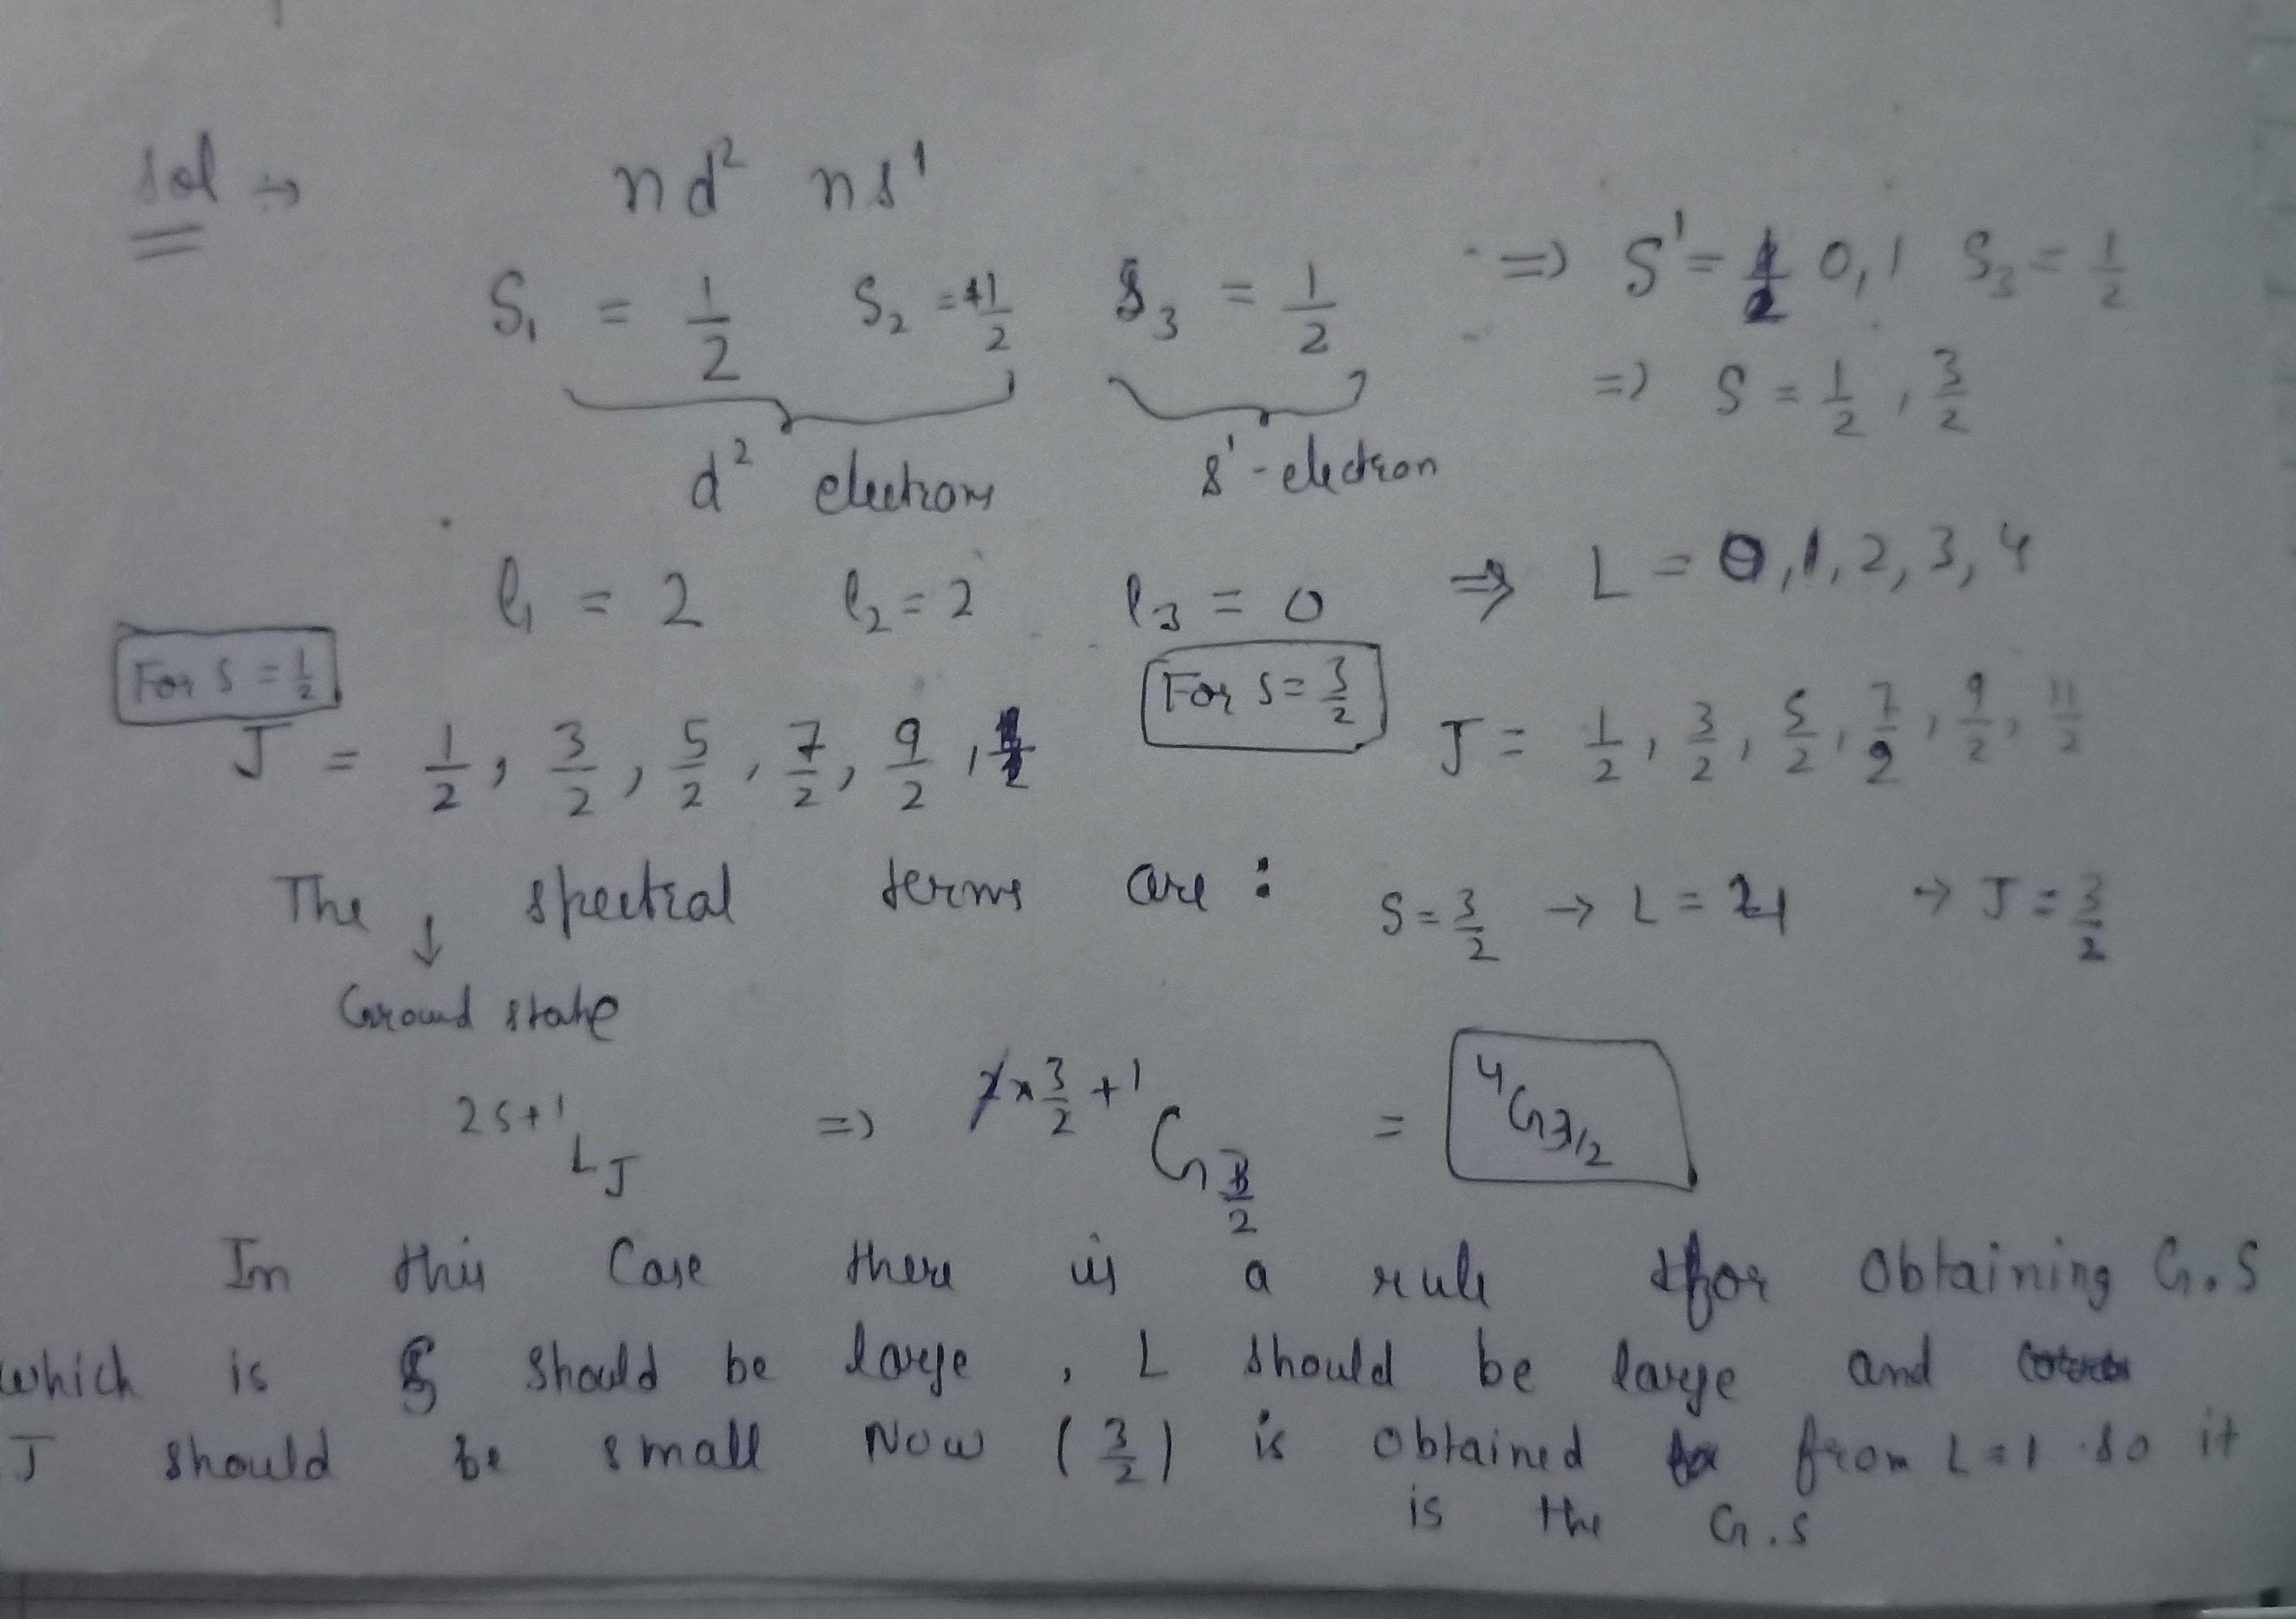 Sol → nd² ns¹
S₁ = 1/2 S₂ = +1/2 S₃ = 1/2 ⇒ S' = 0, 1 S₃ = 1/2
⇒ S = 1/2, 3/2
d² electrons s¹-electron
l₁ = 2 l₂ = 2 l₃ = 0 ⇒ L = 0, 1, 2, 3, 4
For S = 1/2 For S = 3/2
J = 1/2, 3/2, 5/2, 7/2, 9/2, J = 1/2, 3/2, 5/2, 7/2, 9/2, 11/2
The ↓ spectral terms are : S = 3/2 → L = → J = 3/2
Ground state
2S+1 L J ⇒ 2×3/2+1 G 3/2 = ⁴G3/2
In this Case there is a rule for obtaining G.S
which is S should be large, L should be large and
J should be small Now (3/2) is obtained from L=1 so it
is the G.S